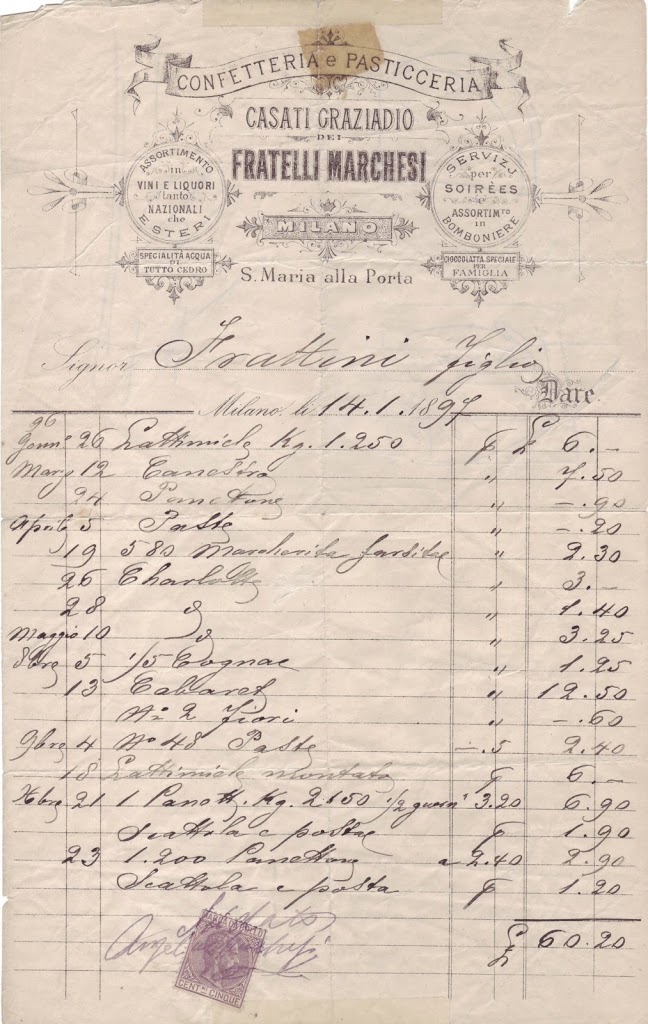 CONFETTERIA e PASTICCERIA
CASATI GRAZIADIO
DEI
FRATELLI MARCHESI
MILANO
S. Maria alla Porta
ASSORTIMENTO
in
VINI E LIQUORI
tanto
NAZIONALI
che
ESTERI
SPECIALITÀ ACQUA
DI
TUTTO CEDRO
SERVIZJ
per
SOIRÉES
e
ASSORTIM.TO
in
BOMBONIERE
CIOCCOLATTA SPECIALE
PER
FAMIGLIA
Signor Frattini Figlio
Dare
Milano, li 14.1.1897
96
Genn.o 26 Lattimiele Kg. 1.250 £ 6.-
Marz 12 Canestro " 7.50
24 Panettone " -.90
Aprile 5 Paste " -.20
19 580 Margherita farsitae " 2.30
26 Charlotte " 3.-
28 " 1.40
Maggio 10 " 3.25
8bre 5 1/5 Cognac " 1.25
13 Cabaret " 12.50
No 2 Fiori " -.60
9bre 4 No 48 Paste -.5 2.40
18 Lattimiele montato 6.-
Xbre 21 1 Panett. Kg. 2150 1/2 3.20 6.90
Scattola e posta 1.90
23 1.200 Panettone a 2.40 2.90
Scattola e posta 1.20
£ 60.20
MARCA DA BOLLO
CENT.MI CINQUE